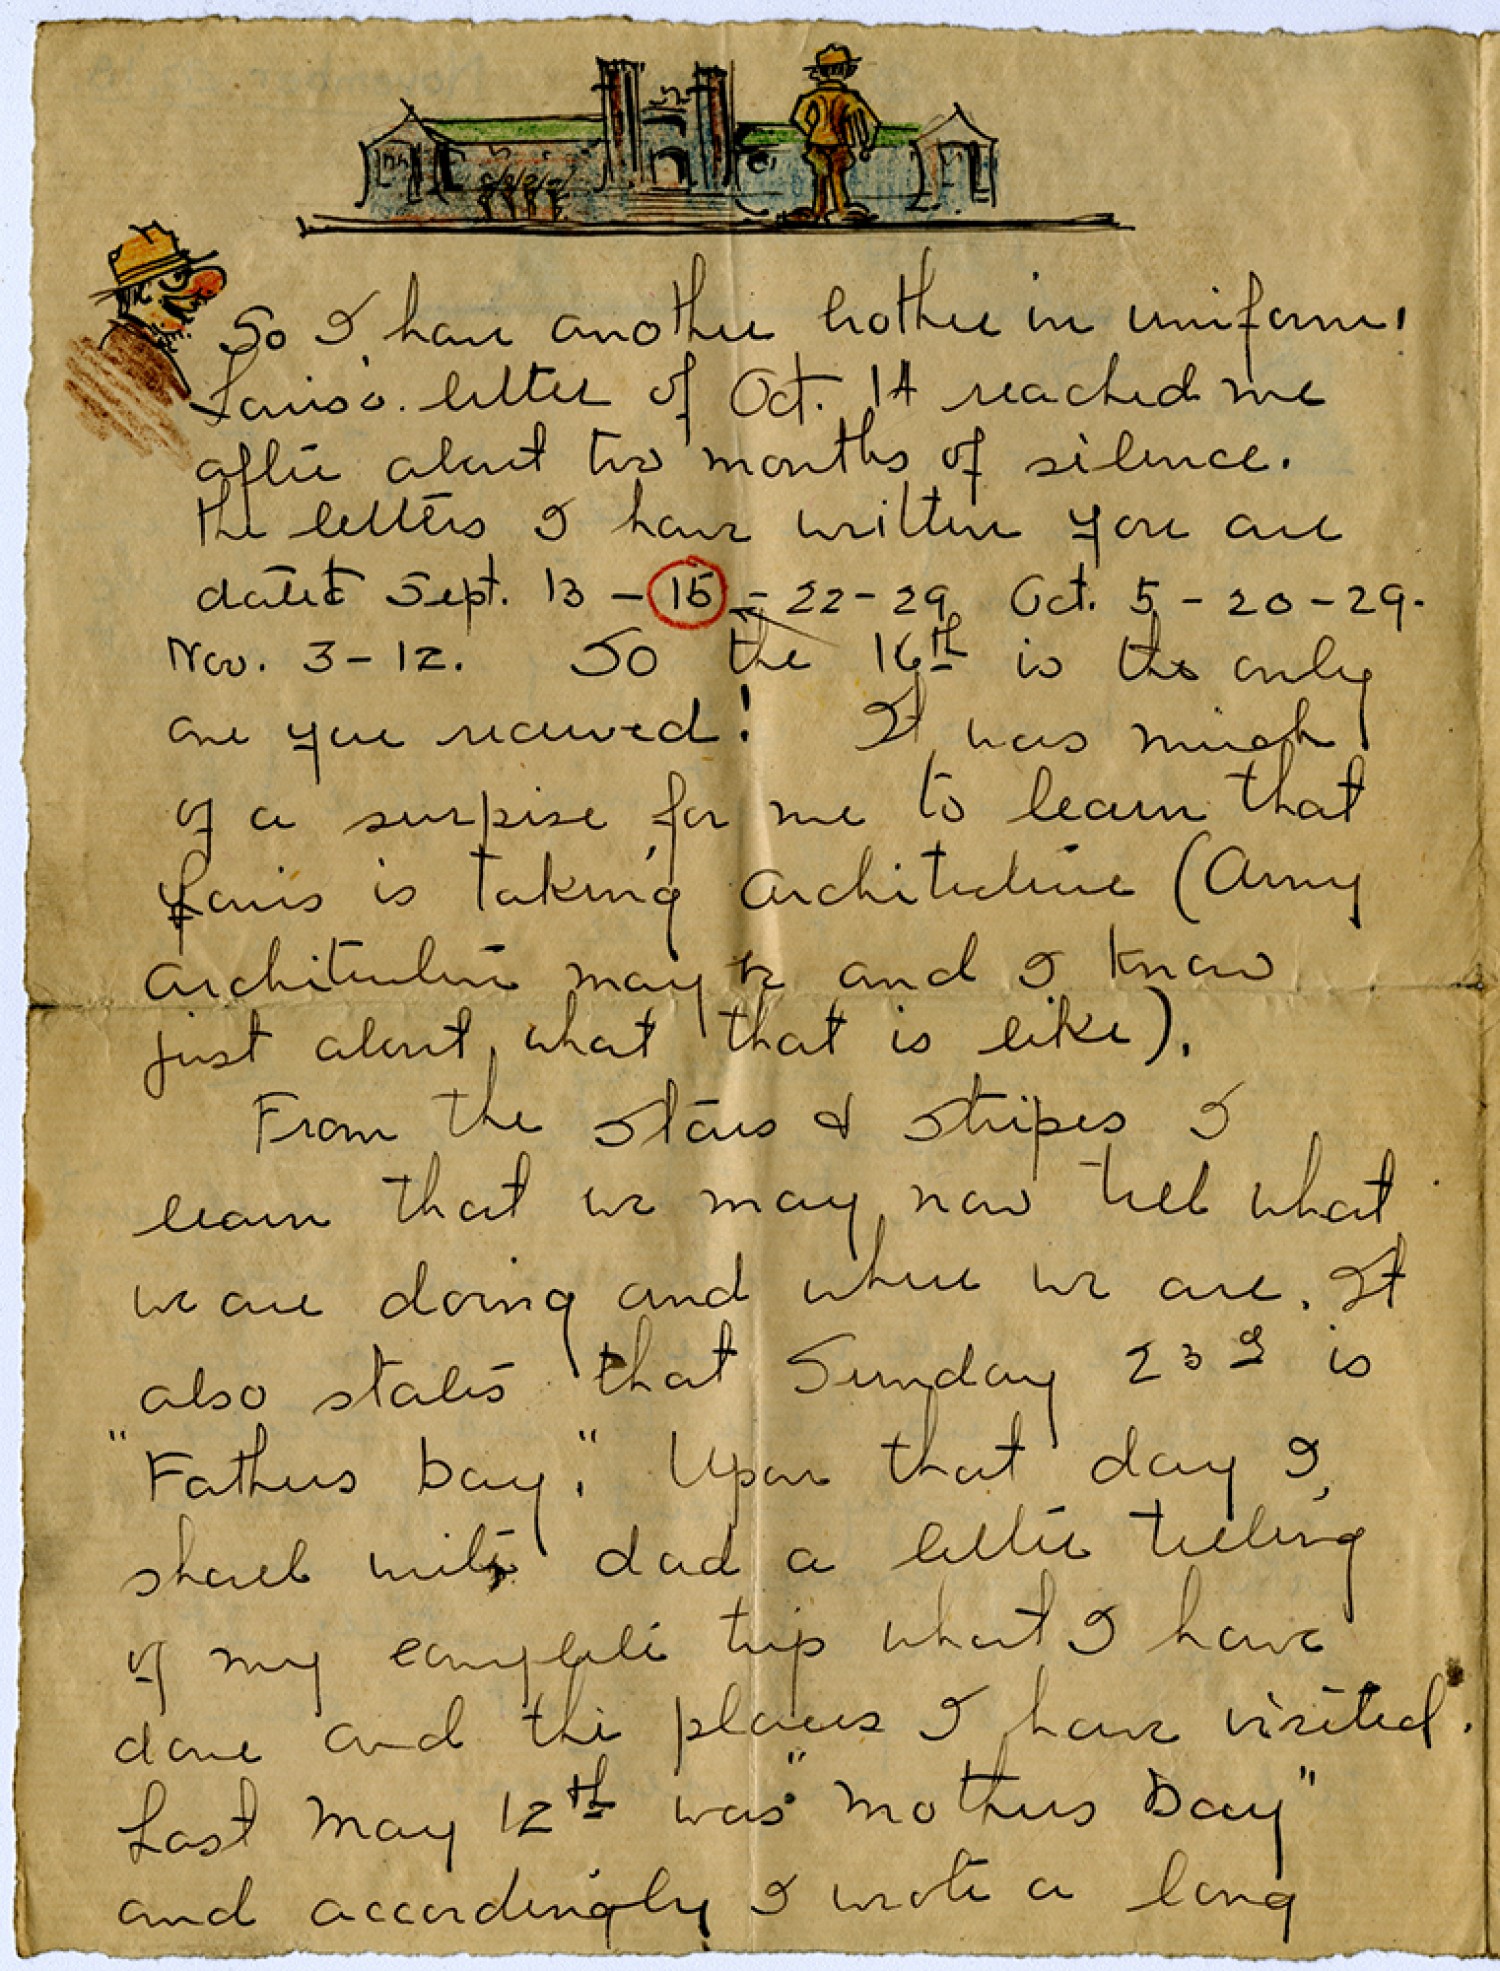 So I have another brother in uniform!
Louis's letter of Oct. 14 reached me
after about two months of silence.
The letters I have written you are
dated Sept. 13 – 15 – 22 – 29 Oct. 5 – 20 – 29 -
Nov. 3 – 12. So the 16th is the only
one you received! It was much
of a surprise for me to learn that
Louis is taking architecture (Army
architecture maybe and I know
just about what that is like).
From the Stars & Stripes I
learn that we may now tell what
we are doing and where we are. It
also states that Sunday 23d is
"Fathers Day". Upon that day I
shall write dad a letter telling
of my complete trip what I have
done and the places I have visited.
Last May 12th was "Mothers Day"
and accordingly I wrote a long